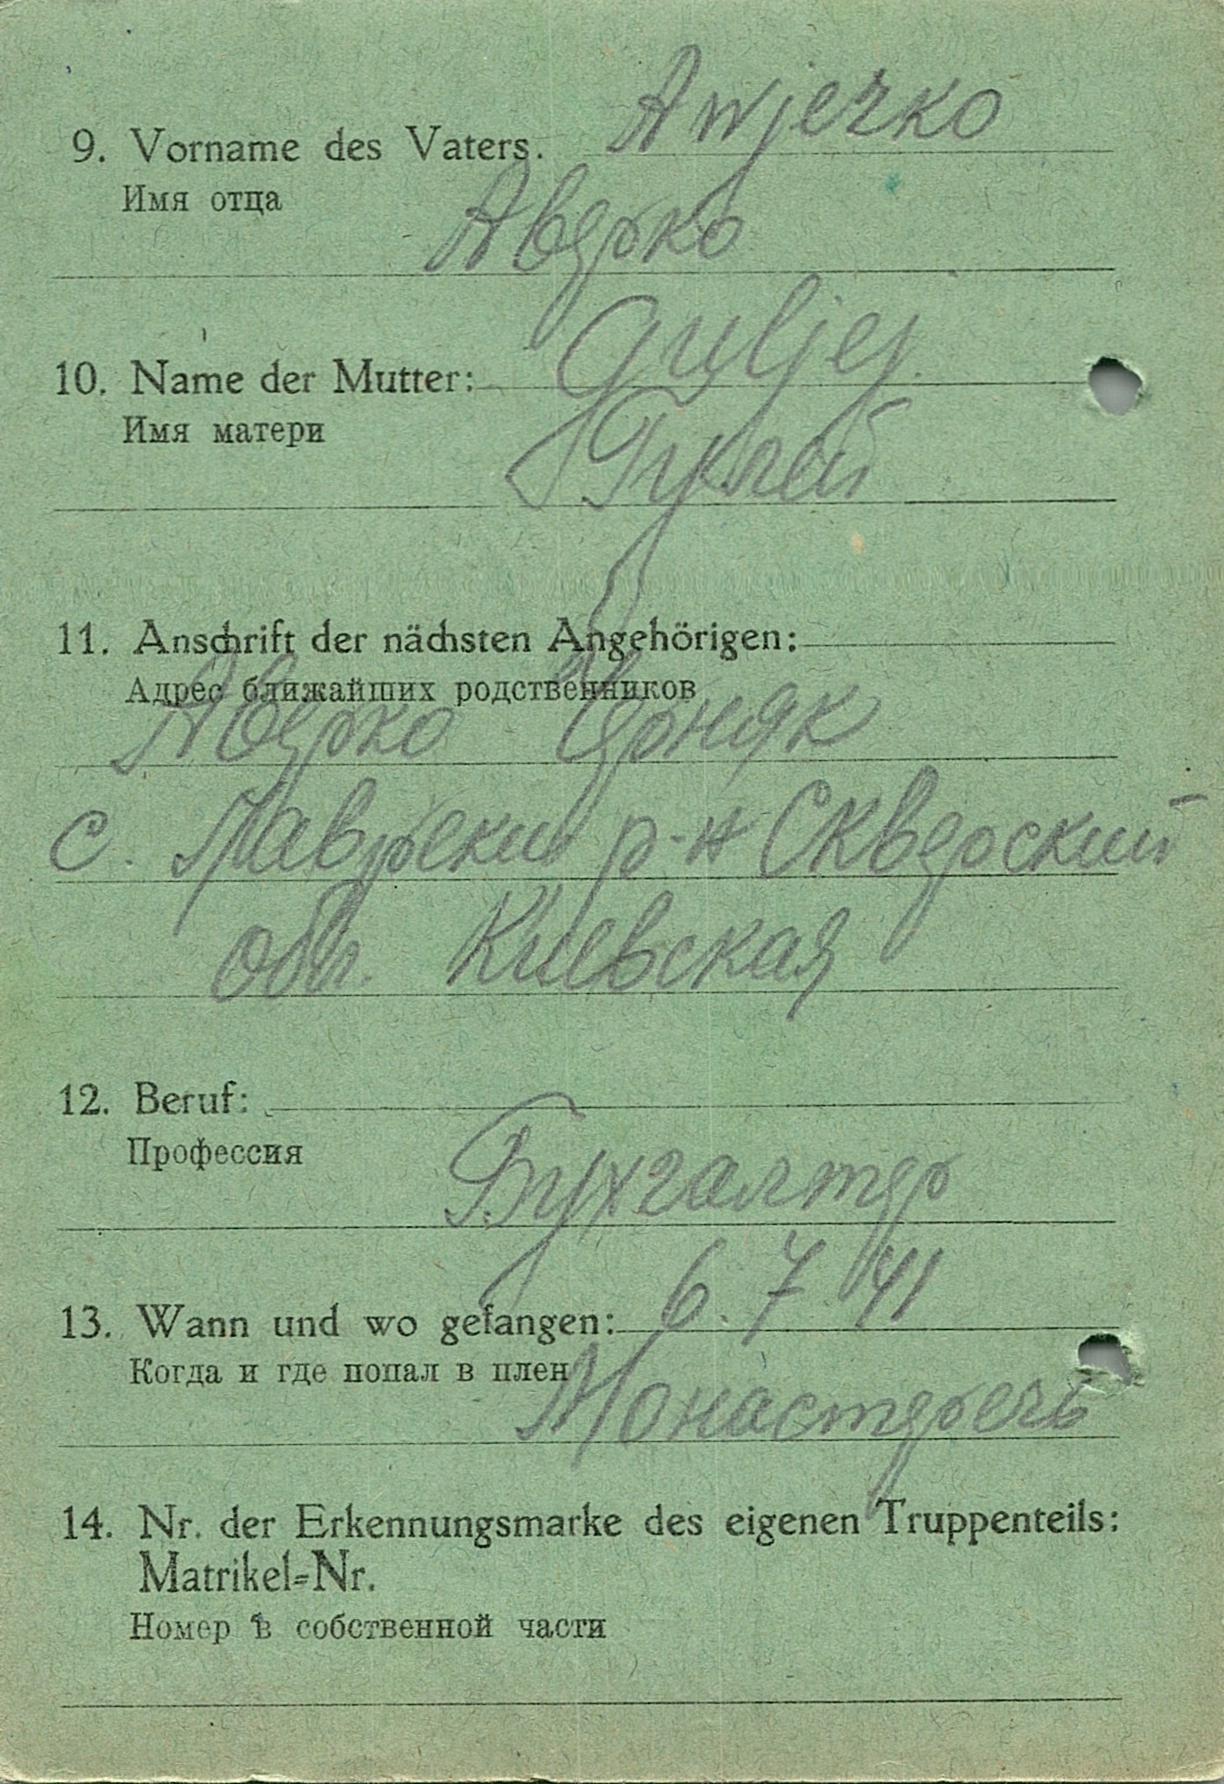 9. Vorname des Vaters. Awjerko
Имя отца
Аверко
10. Name der Mutter: Guljej
Имя матери
Гуклей
11. Anschrift der nächsten Angehörigen:
Адрес ближайших родственников
Аверко
с. Лавреки р-н Скверский
обл. Киевская
12. Beruf:
Профессия
Бухгалтер
13. Wann und wo gefangen: 6. 7. 41
Когда и где попал в плен
Монастеречь
14. Nr. der Erkennungsmarke des eigenen Truppenteils:
Matrikel=Nr.
Номер в собственной части